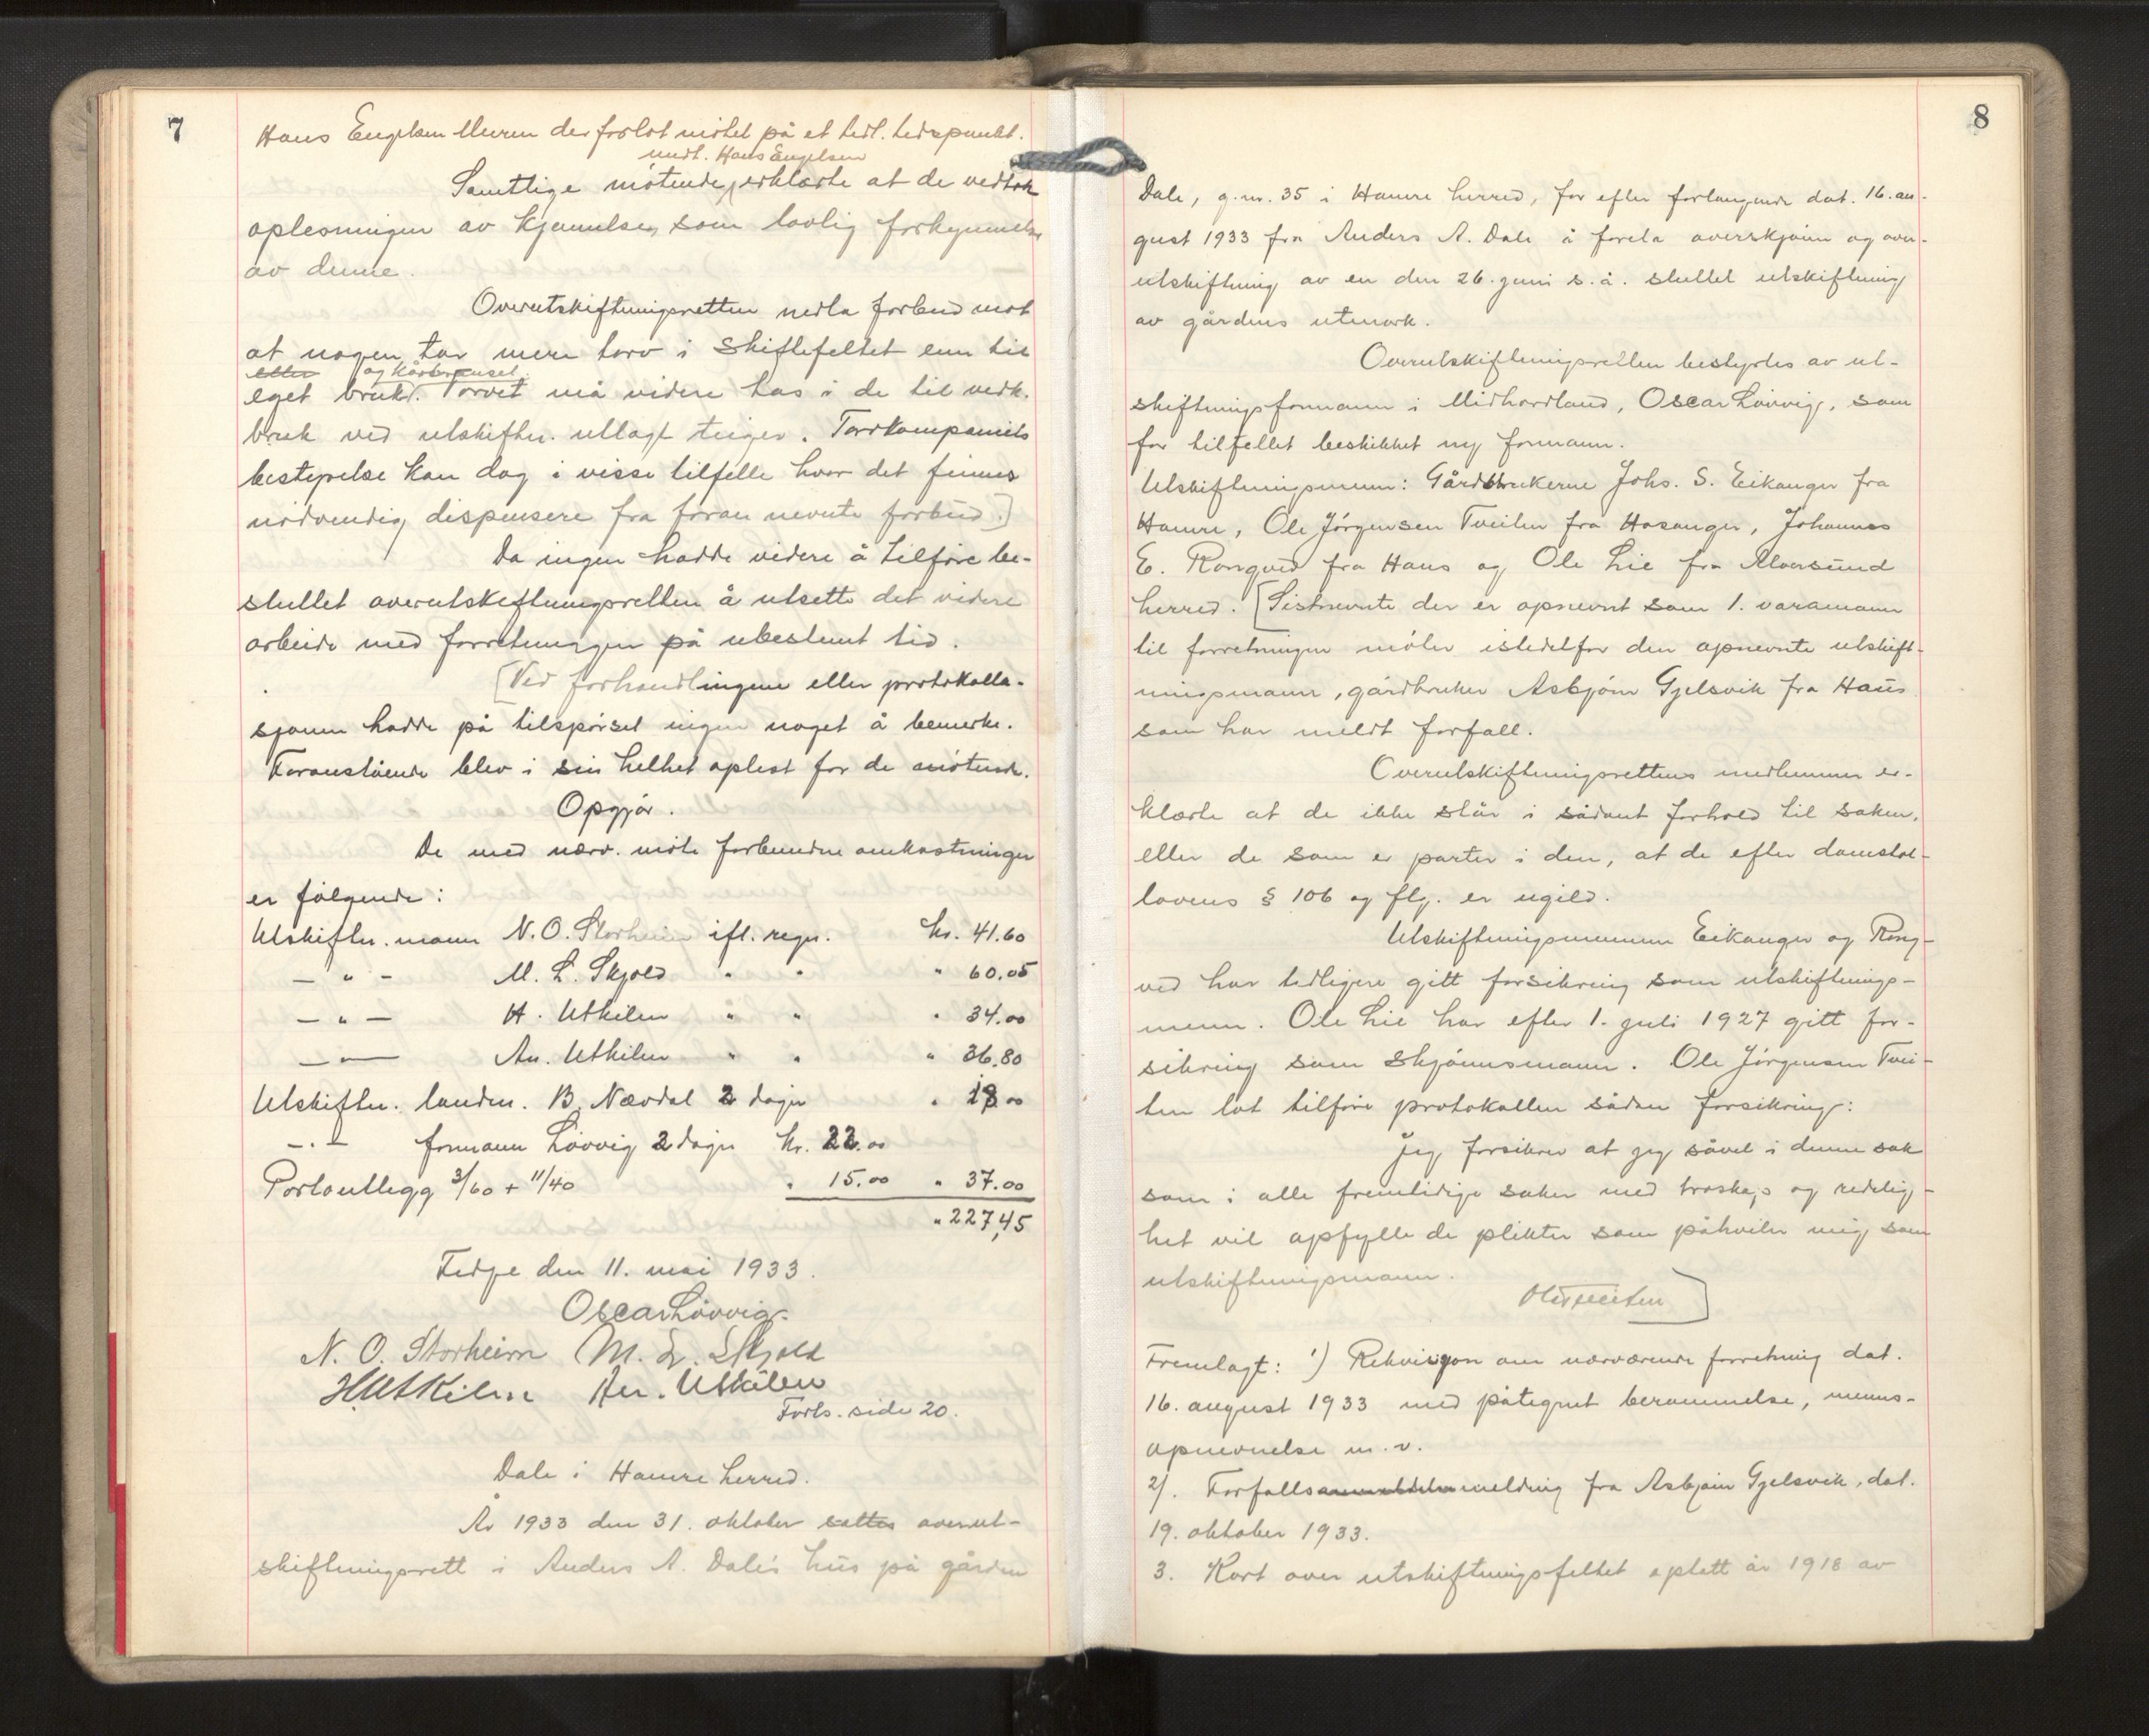 7
Hans Engelsen Muren der forlot møtet på et tidl. tidspunkt.
undt. Hans Engelsen
Samtlige møtende, erklærte at de vedtok
oplesningen av kjennelsen som lovlig forkynnelse
av denne.
Overutskiftningsretten nedla forbud mot
at nogen tar mere torv i skiftefeltet enn til
eller og kårbruket
eget bruk. Torvet må videre tas i de til vedk.
bruk ved utskiftn. utlagt teiger. Torvkompaniets
bestyrelse kan dog i visse tilfelle hvor det finnes
nødvendig dispensere fra foran nevnte forbud.]
Da ingen hadde videre å tilføre be-
sluttet overutskiftningsretten å utsette det videre
arbeide med forretningen på ubestemt tid.
[Ved forhandlingene eller protokolla-
sjonen hadde på tilspørsel ingen noget å bemerke.
Foranstående blev i sin helhet oplest for de møtende.
Opgjør.
De med nærv. møte forbundne omkostninger
er følgende:
Utskiftn. mann N. O. Storheim ifl. regn. kr. 41.60
— " — M. L. Skjold " " " 60.05
— " — H. Utkilen " " " 34.00
— " — An. Utkilen " " " 36.80
Utskiftn. landm. B. Nævdal 2 dager " 18.00
— " — formann Løvvig 2 dager kr. 22.00
Portoutlegg 3/60 + 11/40 " 15.00 " 37.00
" 227,45
Fedje den 11. mai 1933.
Oscar Løvvig.
N. O. Storheim M. L. Skjold
H. Utkilen An. Utkilen
Forts. side 20.
Dale i Hamre herred.
År 1933 den 31. oktober sattes overut-
skiftningsrett i Anders A. Dale's hus på gården
8
Dale, g.nr. 35 i Hamre herred, for efter forlangende dat. 16. au-
gust 1933 fra Anders A. Dale å foreta overskjønn og over-
utskiftning av en den 26. juni s.å. sluttet utskiftning
av gårdens utmark.
Overutskiftningsretten bestyrtes av ut-
skiftningsformann i Midhordland, Oscar Løvvig, som
for tilfellet beskikket ny formann.
Utskiftningsmenn: Gårdbrukerne Johs. S. Eikanger fra
Hamre, Ole Jørgensen Tveiten fra Hosanger, Johannes
E. Rongved fra Haus og Ole Lie fra Alversund
herred. [Sistnevnte der er opnevnt som 1. varamann
til forretningen møter istedetfor den opnevnte utskift-
ningsmann, gårdbruker Asbjørn Gjelsvik fra Haus
som har meldt forfall.
Overutskiftningsrettens medlemmer er-
klærte at de ikke står i sådant forhold til saken,
eller de som er parter i den, at de efter domstol-
lovens § 106 og flg. er ugild.
Utskiftningsmennene Eikanger og Rong-
ved har tidligere gitt forsikring som utskiftnings-
menn. Ole Lie har efter 1. juli 1927 gitt for-
sikring som skjønnsmann. Ole Jørgensen Tvei-
ten lot tilføre protokollen sådan forsikring:
Jeg forsikrer at jeg såvel i denne sak
som i alle fremtidige saker med troskap og redelig-
het vil opfylle de plikter som påhviler mig som
utskiftningsmann.
Ole Tveiten]
Fremlagt: 1) Rekvisisjon om nærværende forretning dat.
16. august 1933 med påtegnet berammelse, menns-
opnevnelse m.v.
2). Forfallsmelding fra Asbjørn Gjelsvik, dat.
19. oktober 1933.
3. Kart over utskiftningsfeltet optatt år 1918 av